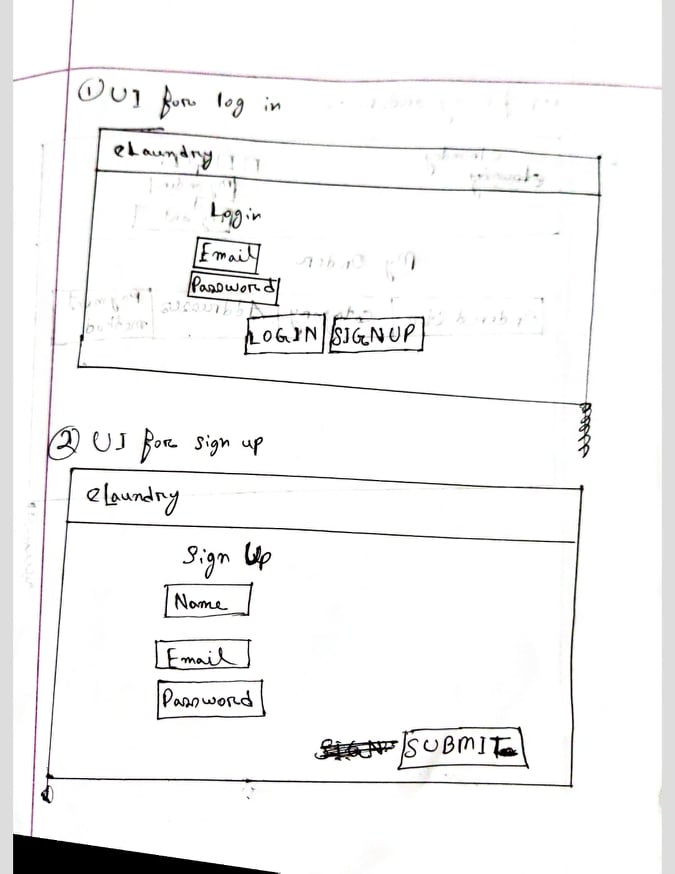 ① UI for log in
eLaundry
Login
Email
Password
LOGIN SIGNUP
② UI for sign up
eLaundry
Sign Up
Name
Email
Password
SUBMIT